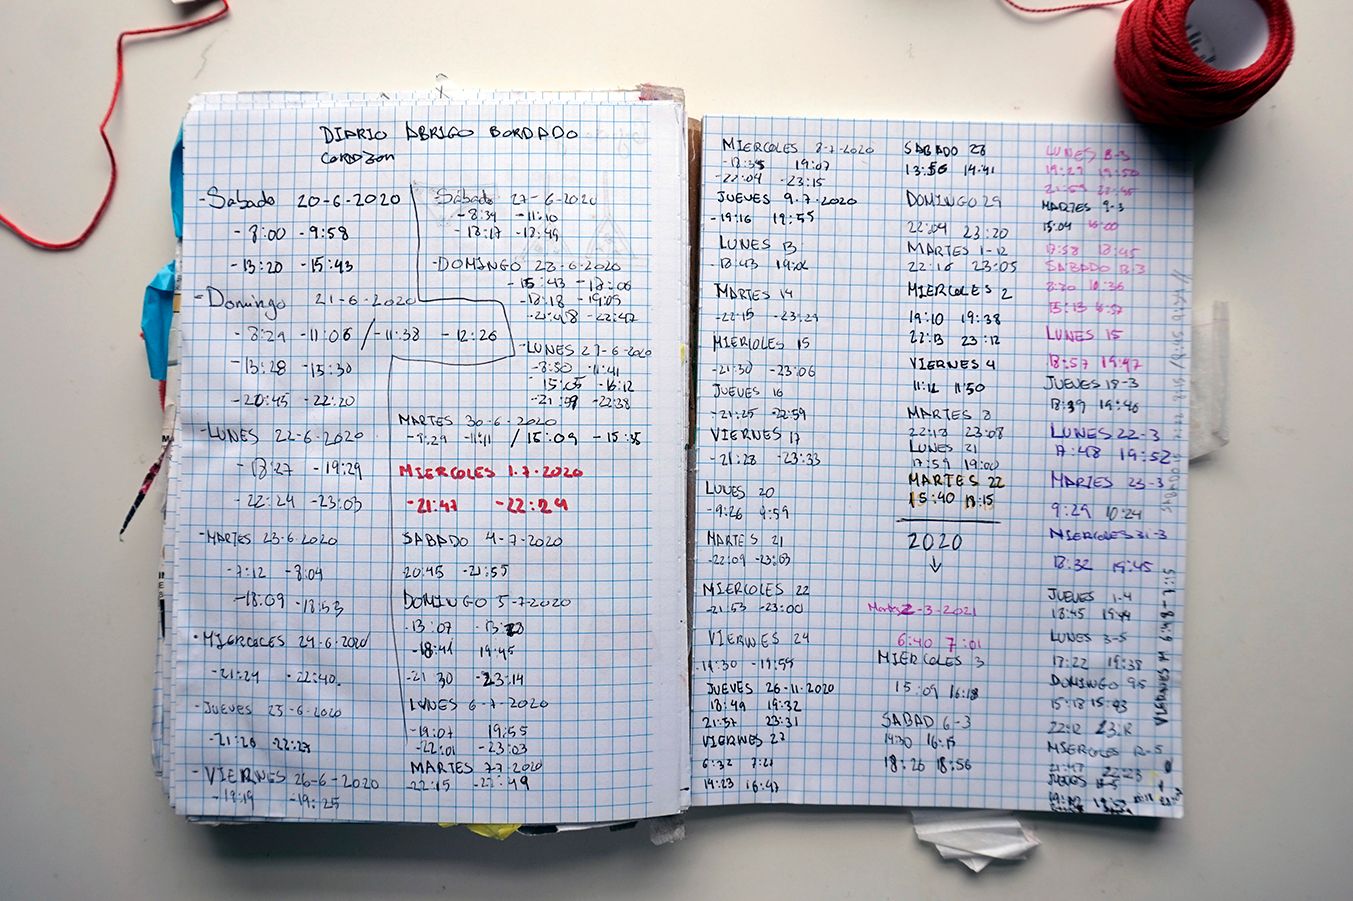 DIARIO ABRIGO BORDADO
CORAZON
-Sabado 20-6-2020
-8:00 -9:58
-13:20 -15:43
-Domingo 21-6-2020
-8:29 -11:06 / -11:38 -12:26
-13:28 -15:30
-20:45 -22:20
-LUNES 22-6-2020
-18:27 -19:29
-22:24 -23:03
-MARTES 23-6-2020
-7:12 -8:04
-18:09 -18:53
-MIERCOLES 24-6-2020
-21:24 -22:40
-JUEVES 25-6-2020
-21:26
-VIERNES 26-6-2020
-18:19 -19:25
Sabado 27-6-2020
-8:34 -11:10
-18:17 -18:49
-DOMINGO 28-6-2020
-15:43 -18:06
-18:18 -19:05
-22:47
-LUNES 29-6-2020
-8:50 -11:41
15:05 -16:12
-22:38
MARTES 30-6-2020
-9:29 -11:11 / 15:09 -15:35
MIERCOLES 1.7.2020
-21:47 -22:29
SABADO 4-7-2020
20:45 -21:55
DOMINGO 5-7-2020
-13:07
-18:41 19:45
-21 30 -23:14
LUNES 6-7-2020
-19:07 19:55
-22:01 -23:03
MARTES 7-7-2020
22:15 -22:49
MIERCOLES 8-7-2020
-18:35 19:07
-22:09 -23:15
JUEVES 9.7.2020
-19:16 19:55
LUNES 13
-18:43
MARTES 14
-22:15 -23:29
MIERCOLES 15
-21:30 -23:06
JUEVES 16
-21:25 -22:59
VIERNES 17
-21:28 -23:33
LUNES 20
-9:26 9:59
MARTES 21
-22:09 -23:03
MIERCOLES 22
-21:53 -23:00
VIERNES 24
-19:30 -19:55
JUEVES 26-11-2020
18:49 19:32
21:57 23:31
VIERNES 27
6:32 7:21
14:23 16:47
SABADO 28
13:56 14:41
DOMINGO 29
22:04 23:20
MARTES 1-12
22:16 23:05
MIERCOLES 2
19:10 19:38
22:13 23:12
VIERNES 4
11:12 11:50
MARTES 8
22:18 23:08
LUNES 21
17:59 19:00
MARTES 22
15:40 18:15
2020
↓
Martes 2-3-2021
6:40 7:01
MIERCOLES 3
15:09 16:18
SABAD 6-3
14:30 16:15
18:26 18:56
LUNES 8-3
19:27 19:50
MARTES 9-3
15:04
17:58 18:45
SABADO 13-3
8:20 10:36
15:13
LUNES 15
18:57 19:47
JUEVES 18-3
18:39 19:46
LUNES 22-3
17:48 19:52
MARTES 23-3
9:29 10:24
MIERCOLES 31-3
18:32 19:45
JUEVES 1-4
18:45
LUNES 3-5
17:22 19:38
DOMINGO 9-5
15:18 15:43
22:12
MIERCOLES 12-5
21:47 22:23
JUEVES
VIERNES 14 6:48-7:15
SABADO